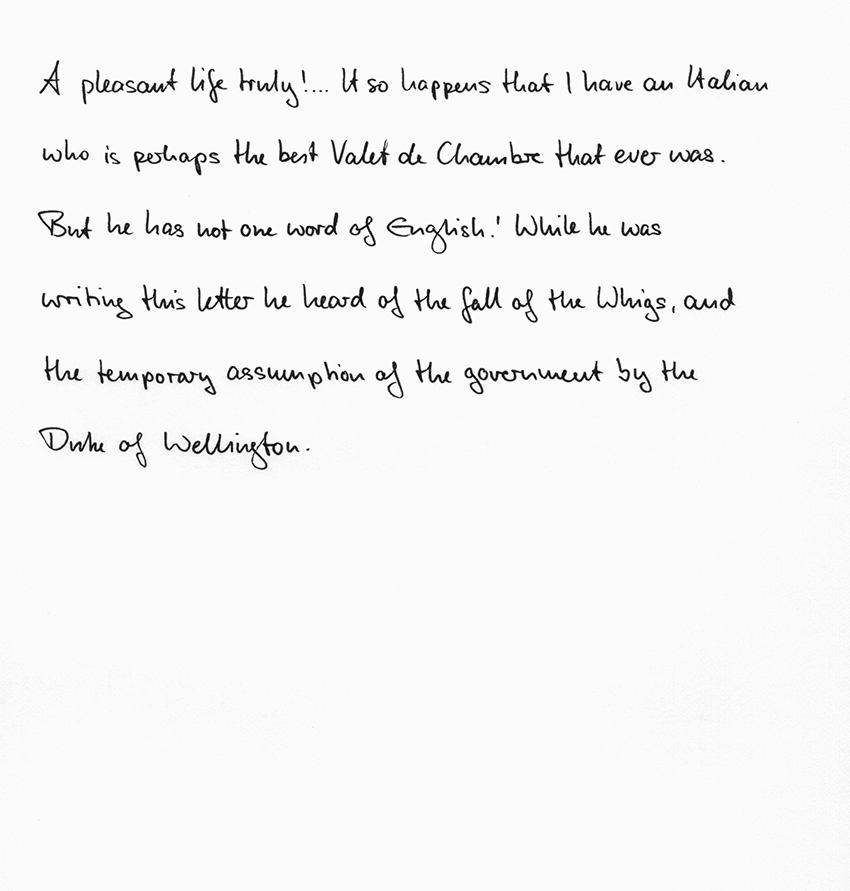 A pleasant life truly!... It so happens that I have an Italian
who is perhaps the best Valet de Chambre that ever was.
But he has not one word of English.' While he was
writing this letter he heard of the fall of the Whigs, and
the temporary assumption of the government by the
Duke of Wellington.